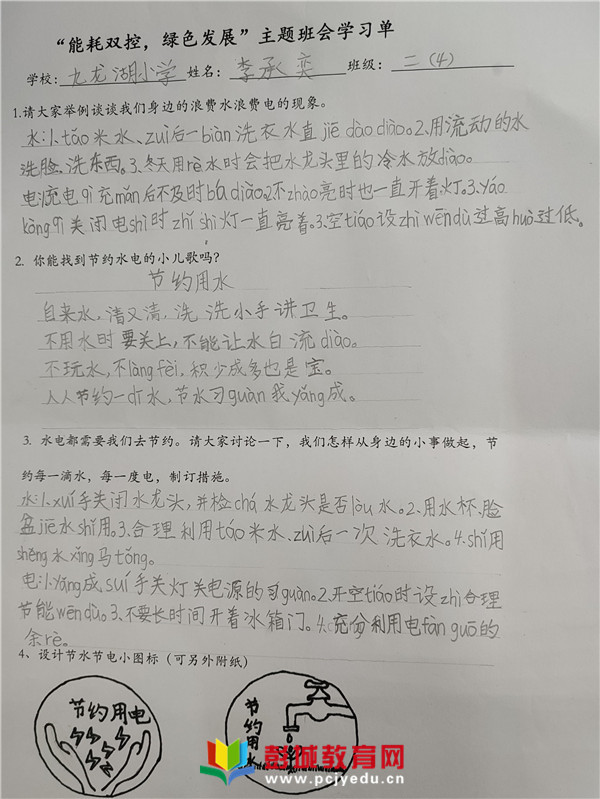 “能耗双控，绿色发展”主题班会学习单
学校：九龙湖小学 姓名：李承奕 班级：二（4）
1.请大家举例谈谈我们身边的浪费水浪费电的现象。
水:1.táo米水、zuì后一biàn洗衣水直jiē dào diào。2.用流动的水
洗脸、洗东西。3.冬天用rè水时会把水龙头里的冷水放diào。
电:1.充电qì充mǎn后不及时bá diào。2.不zhào亮时也一直开着灯。3.yáo
kòng qì关闭电shì时zhǐ shì灯一直亮着。3.空tiáo设zhì wēn dù过高huò过低。
2. 你能找到节约水电的小儿歌吗？
节约用水
自来水，清又清，洗洗小手讲卫生。
不用水时要关上，不能让水白流diào。
不玩水，不làng fèi，积少成多也是宝。
人人节约一dī水，节水习guàn我yǎng成。
3. 水电都需要我们去节约。请大家讨论一下，我们怎样从身边的小事做起，节
约每一滴水，每一度电，制订措施。
水:1.suí手关闭水龙头，并检chá水龙头是否lòu水。2.用水杯、脸
盆jiē水shǐ用。3.合理利用táo米水、zuì后一次洗衣水。4.shǐ用
shěng水xíng马tǒng。
电:1.yǎng成suí手关灯关电源的习guàn。2.开空tiáo时设zhì合理
节能wēn dù。3.不要长时间开着冰箱门。4.充分利用电fàn guō的
余rè。
4、设计节水节电小图标（可另外附纸）
节约用电
节约用水
彭城教育网
www.pcjyedu.cn